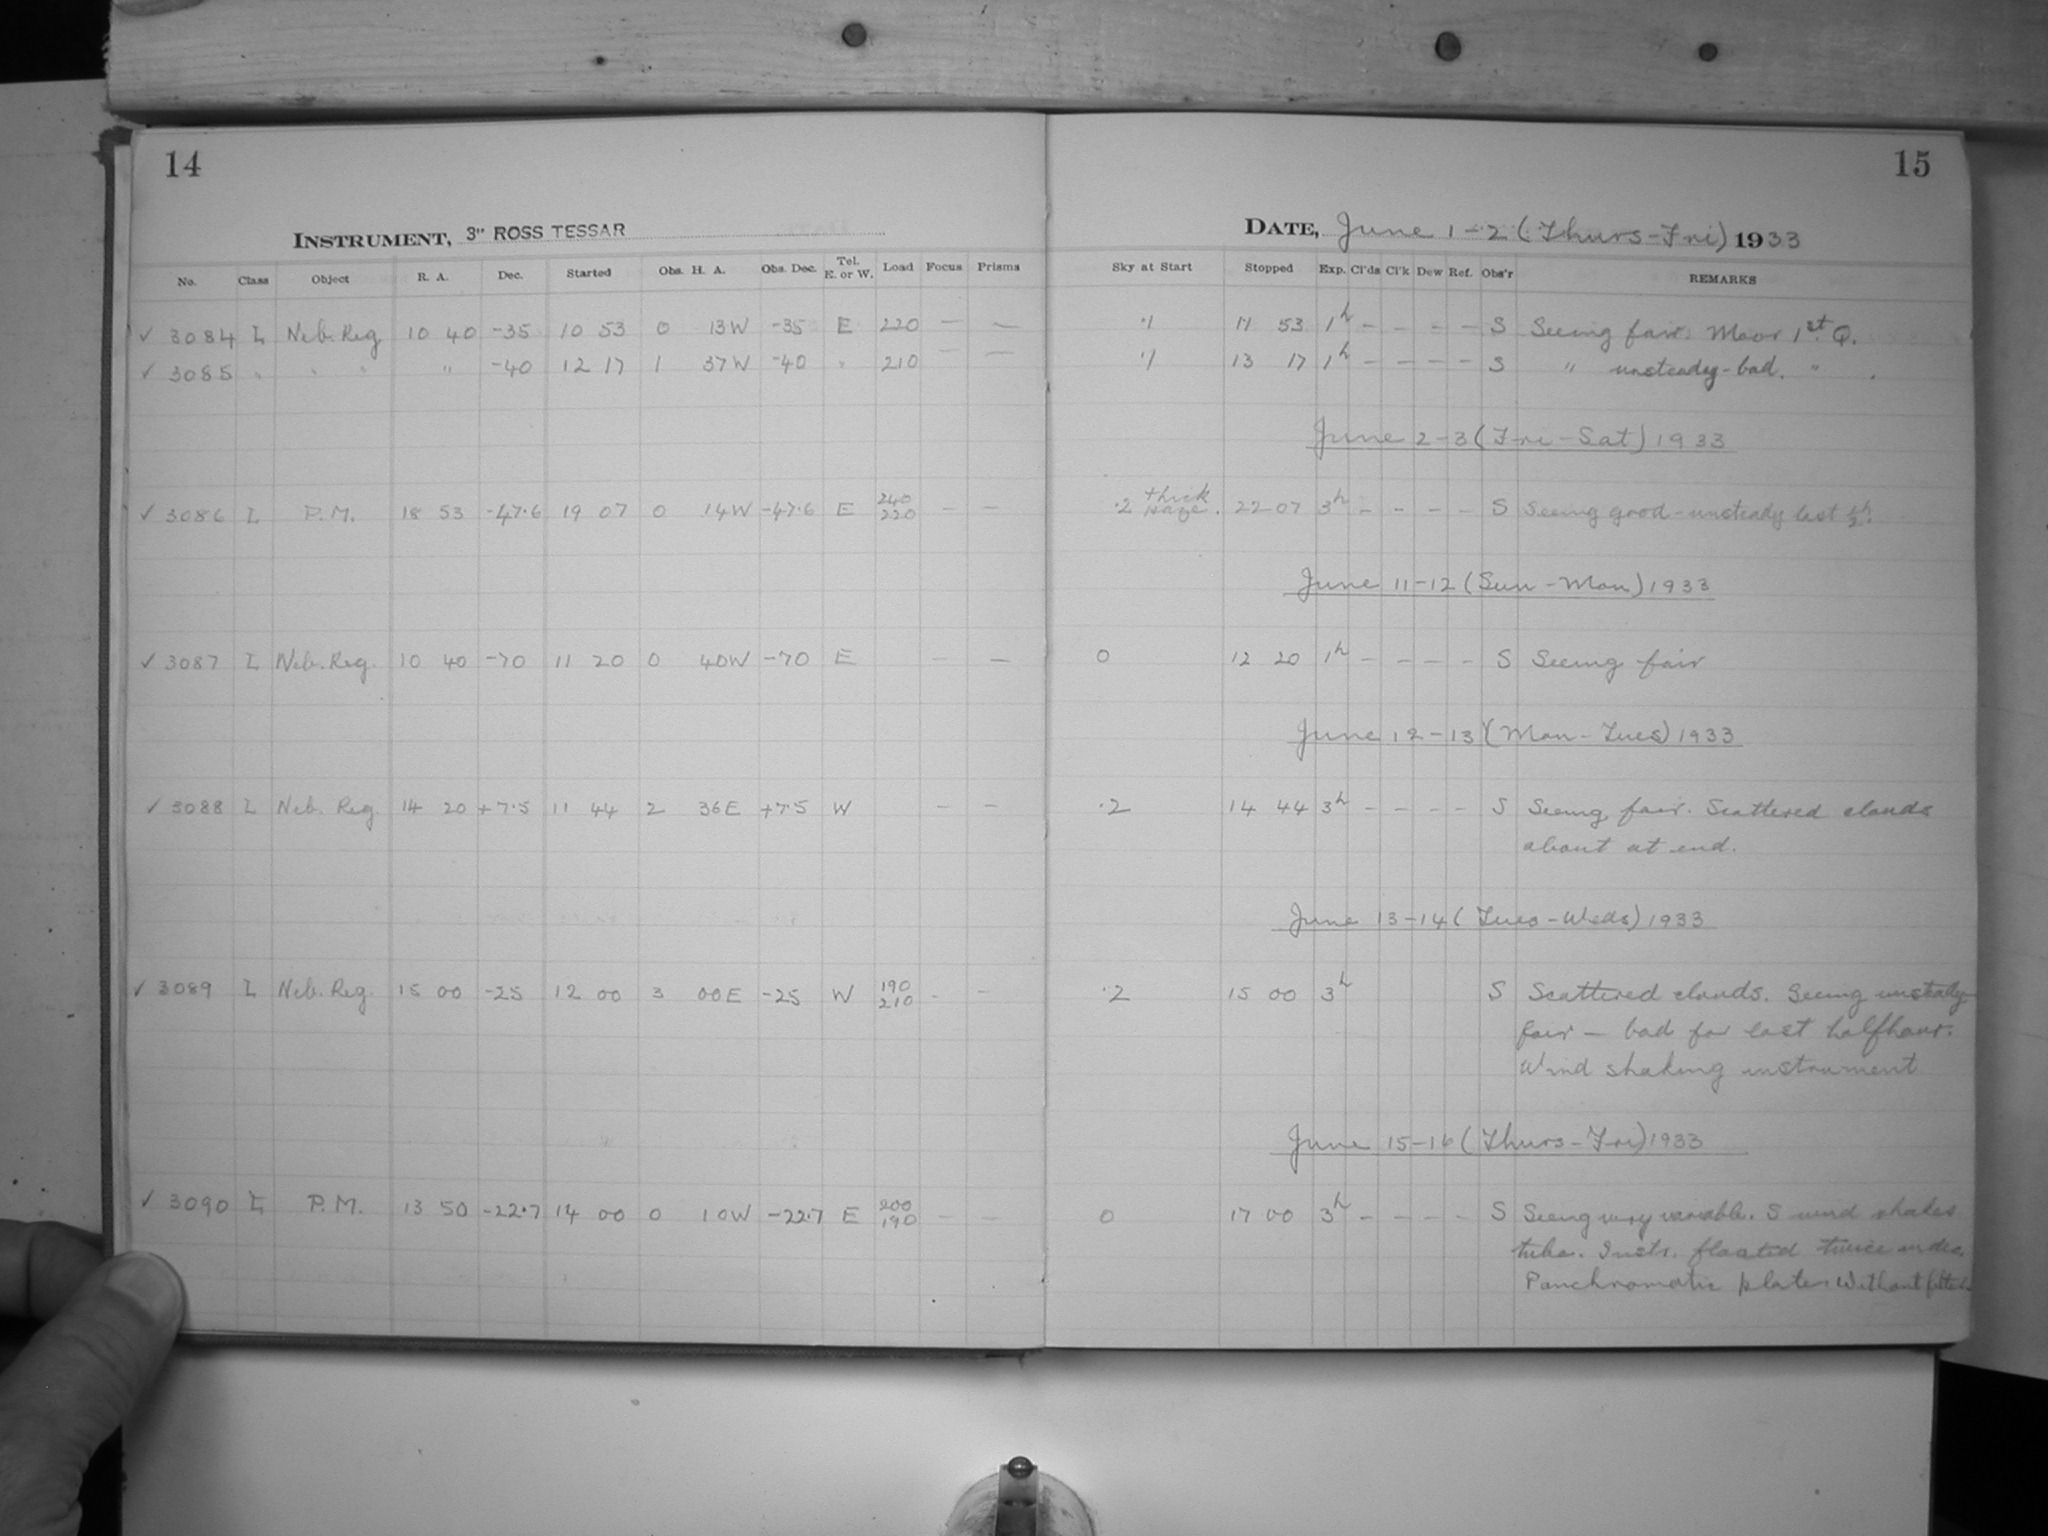 14
INSTRUMENT, 3" ROSS TESSAR
No. Class Object R. A. Dec. Started Obs. H. A. Obs. Dec. Tel. E. or W. Load Focus Prisms
✓ 3084 L Neb. Reg. 10 40 -35 10 53 0 13W -35 E 220 — —
✓ 3085 " " " " -40 12 17 1 37W -40 " 210 — —
✓ 3086 L P.M. 18 53 -47.6 19 07 0 14W -47.6 E 240 220 — —
✓ 3087 L Neb. Reg. 10 40 -70 11 20 0 40W -70 E — —
✓ 3088 L Neb. Reg. 14 20 +7.5 11 44 2 36E +7.5 W — —
✓ 3089 L Neb. Reg. 15 00 -25 12 00 3 00E -25 W 190 210 - —
✓ 3090 L P.M. 13 50 -22.7 14 00 0 10W -22.7 E 200 190 — —
15
DATE, June 1-2 (Thurs-Fri) 1933
Sky at Start Stopped Exp. Cl'ds Cl'k Dew Ref. Obs'r REMARKS
.1 11 53 1h - - - - S Seeing fair. Moon 1st Q.
.1 13 17 1h - - - - S " unsteady-bad. " .
June 2-3 (Fri-Sat) 1933
.2 thick haze. 22 07 3h - - - - S Seeing good-unsteady last ½h.
June 11-12 (Sun-Mon) 1933
0 12 20 1h - - - - S Seeing fair
June 12-13 (Mon-Tues) 1933
.2 14 44 3h - - - - S Seeing fair. Scattered clouds
about at end.
June 13-14 (Tues-Weds) 1933
.2 15 00 3h S Scattered clouds. Seeing unsteady
fair — bad for last halfhour.
Wind shaking instrument
June 15-16 (Thurs-Fri) 1933
0 17 00 3h - - - - S Seeing very variable. S wind shakes
tube. Instr. floated twice in dec.
Panchromatic plates without filter.